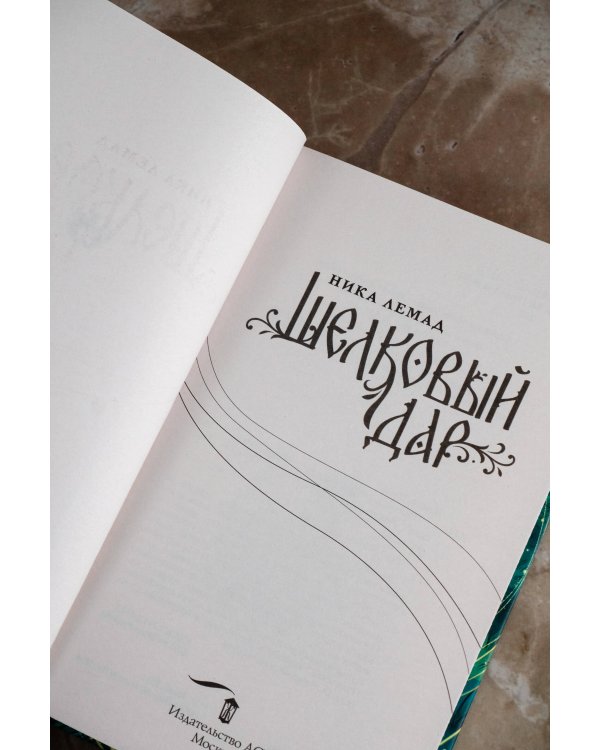 НИКА ЛЕМАД
Шелковый
дар
Издательство АС
Моск